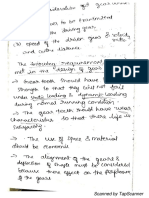 to be transmitted
the driving gear
(3) Speed of the driven gear & velocity
and centre distance.
The following requirements must be
met in the design of gear
→ The gear teeth should have sufficient
strength so that they will not fail
under static loading & dynamic loading
during normal running condition
→ The gear teeth should have wear
characteristics so that there life is
satisfactory
→ The use of space & material
should be economic
→ The alignment of the gears &
deflection of shafts must be considered
because there effect on the performance
of the gears
Scanned by TapScanner